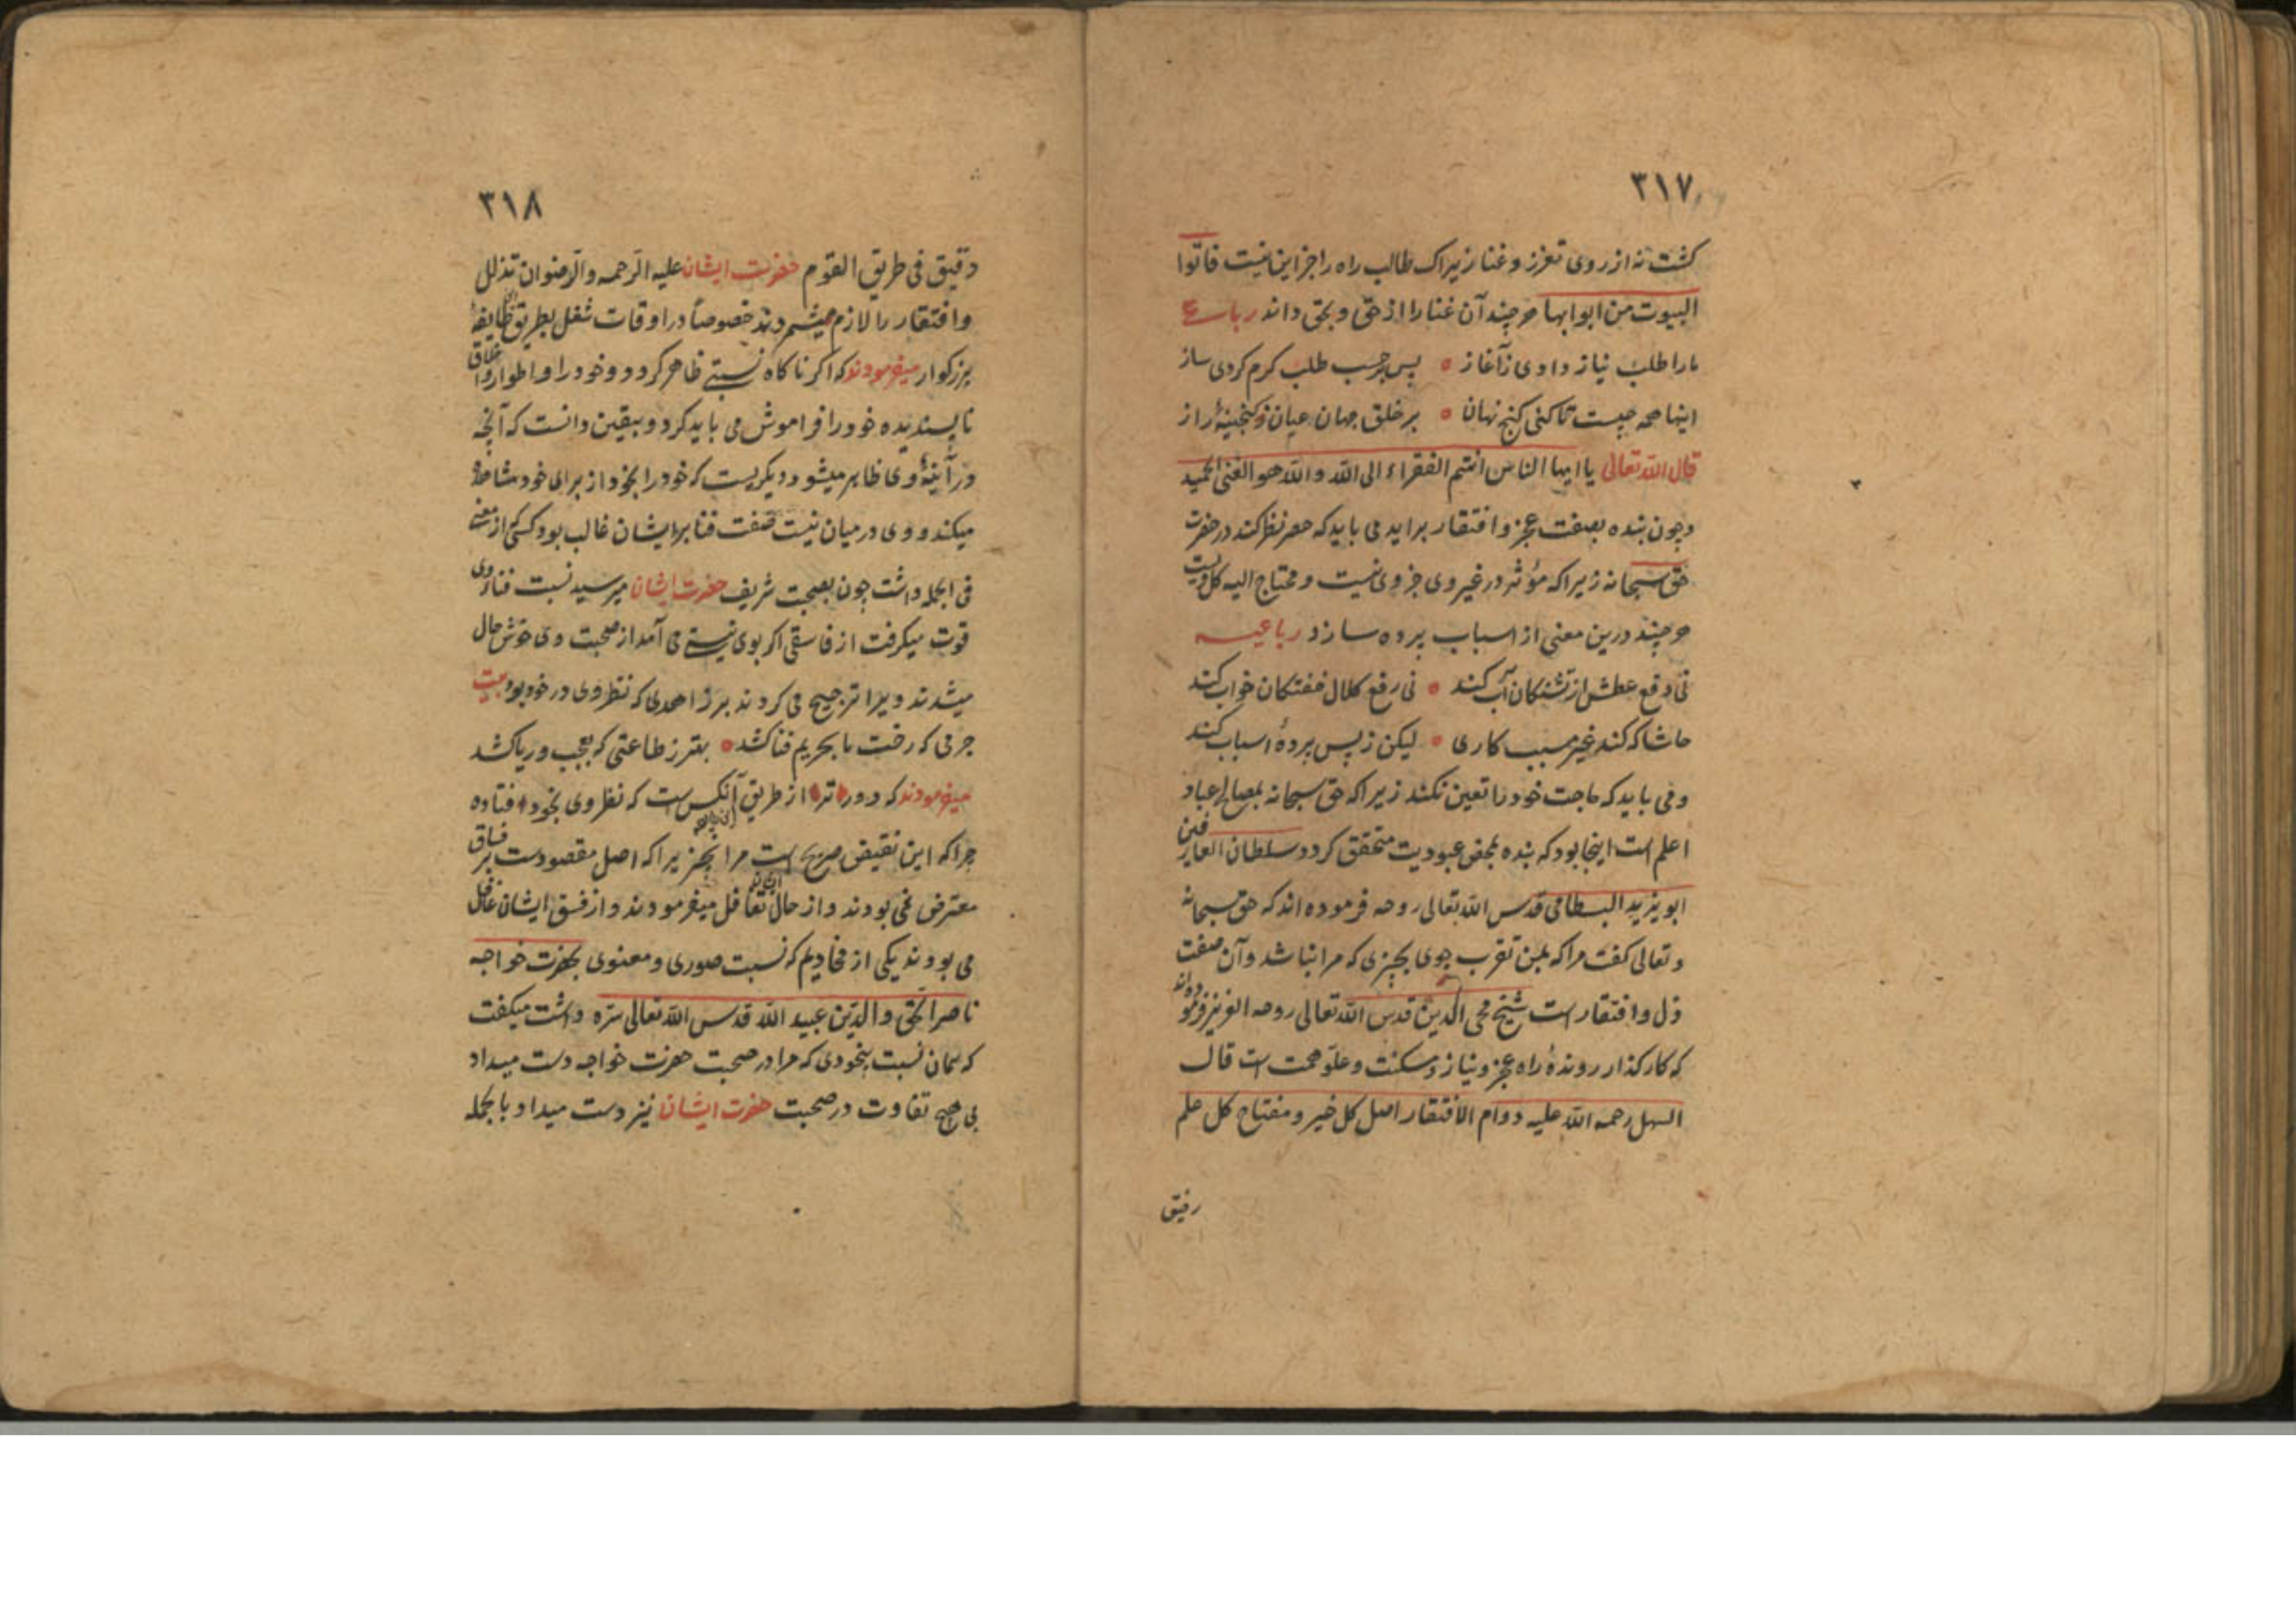 ۳۱۷
کشت نه از روی تعزز و غنا زیراک طالب راه را جز این نیست فاتوا
البیوت من ابوابها هرچند آن غنا را از حق و بحق داند رباعی
ما را طلب نیاز دادی ز آغاز ٥ پس بر حسب طلب کرم کردی ساز
اینها همه چیست تا کنی کنج نهان ٥ بر خلق جهان عیان ز کنجینهٔ راز
قال الله تعالی یا ایها الناس انتم الفقراء الی الله والله هو الغنی الحمید
و چون بنده بصفت عجز و افتقار براید می باید که حصر نظر کند در حضرت
حق سبحانه زیرا که مؤثر در غیر وی جز وی نیست و محتاج الیه کل ویست
هر چند درین معنی از اسباب پرده سازد رباعیه
نی دفع عطش از تشنکان آب کند ٥ نی رفع کلال خفتکان خواب کند
حاشا که کند غیر مسبب کاری ٥ لیکن ز پس پردهٔ اسباب کند
و می باید که حاجت خود را تعین نکند زیرا که حق سبحانه بمصالح عباد
اعلم است اینجا بود که بنده بمحض عبودیت متحقق کردد سلطان العارفین
ابو یزید البسطامی قدس الله تعالی روحه فرموده اند که حق سبحانه
و تعالی کفت مرا که بمن تقرب جوی بچیزی که مرا نباشد و آن صفت
ذل و افتقار است شیخ محی الدین قدس الله تعالی روحه العزیز فرموده اند
که کار کذار روندهٔ راه عجز و نیاز و مسکنت و علو همت است قال
السهل رحمه الله علیه دوام الافتقار اصل کل خیر و مفتاح کل علم
رفیق
۳۱۸
دقیق فی طریق القوم حضرت ایشان علیه الرحمه والرضوان تذلل
و افتقار را لازم میشمردند خصوصاً در اوقات شغل بطریق این طایفهٔ
بزرکوار میفرمودند که اکر ناکاه نسبتی ظاهر کردد و خود را و اطوار و اخلاق
ناپسندیده خود را فراموش می باید کرد و بیقین دانست که آنچه
در آینهٔ وی ظاهر میشود دیکریست که خود را بخود از برای خود مشاهده
میکند و وی در میان نیست صفت فنا بر ایشان غالب بود کسی که از معنی
فی الجمله داشت چون بصحبت شریف حضرت ایشان میرسید نسبت فناء وی
قوت میکرفت از فاسقی اکر بوی نیستی می آمد از صحبت وی خوش حال
میشدند و ویرا ترجیح می کردند بر زاهدی که نظر وی در خود بود بیت
جرمی که رخت ما بحریم فنا کشد ٥ بهتر ز طاعتی که بعجب و ریا کشد
میفرمودند که دورتر از طریق آنکس است که نظر وی بخود افتاده
چرا که این نقیض صریح است مرا نچیز یرا که اصل مقصودست بر فساق
معترض نمی بودند و از حال ایشان تغافل میفرمودند و از فسق ایشان غافل
می بودند یکی از مخادیم که نسبت صوری و معنوی بحضرت خواجه
ناصر الحق والدین عبید الله قدس الله تعالی سره داشت میکفت
که همان نسبت بیخودی که مرا در صحبت حضرت خواجه دست میداد
بی هیچ تفاوت در صحبت حضرت ایشان نیز دست میداد بالجمله